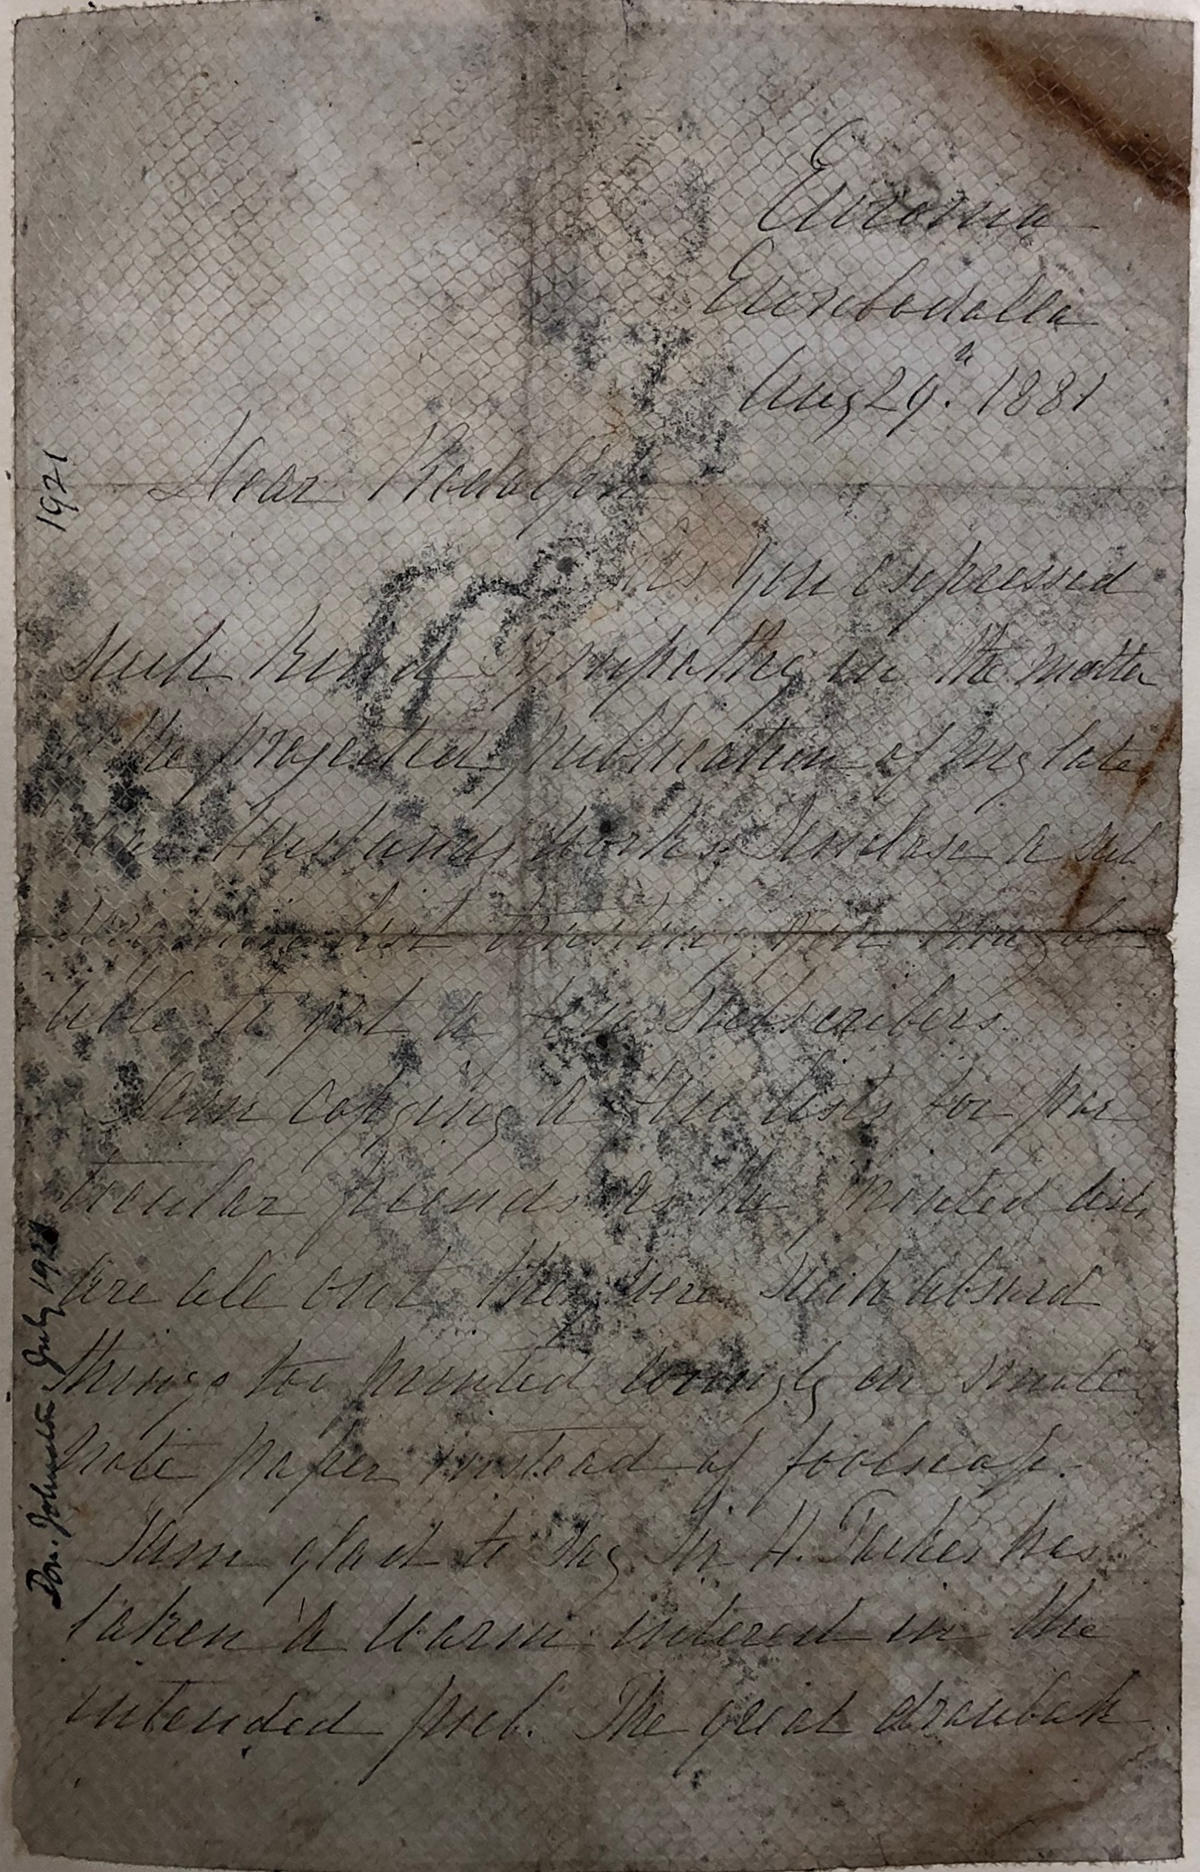 Euroma
Eurobodalla
Aug 29th. 1881
Dear Rodolph
As you expressed
such kind sympathy in the matter
the projected publication of my late
Husbands works I inclose a sub
list trusting you may be
able to get a few Subscribers.
I am copying a few lists for par
ticular friends as the printed
are all out they were such absurd
things too printed wrongly on small
note paper instead of foolscap.
I am glad to say Sir H. Parkes has
taken a warm interest in the
intended pub. The great drawbak
1921
Don. Johnston July 1921